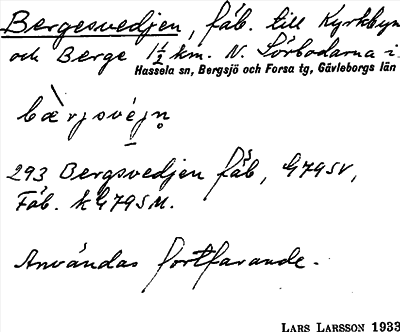 Bergesvedjen, fäb. till Kyrkbyn
och Berge 1½ km. N. Sörbodarna i
Hassela sn, Bergsjö och Forsa tg, Gävleborgs län
bæ̀rjsvéjn̥
293 Bergsvedjen fäb, G79SV,
Fäb. k G79SM.
Användas fortfarande.
LARS LARSSON 1933